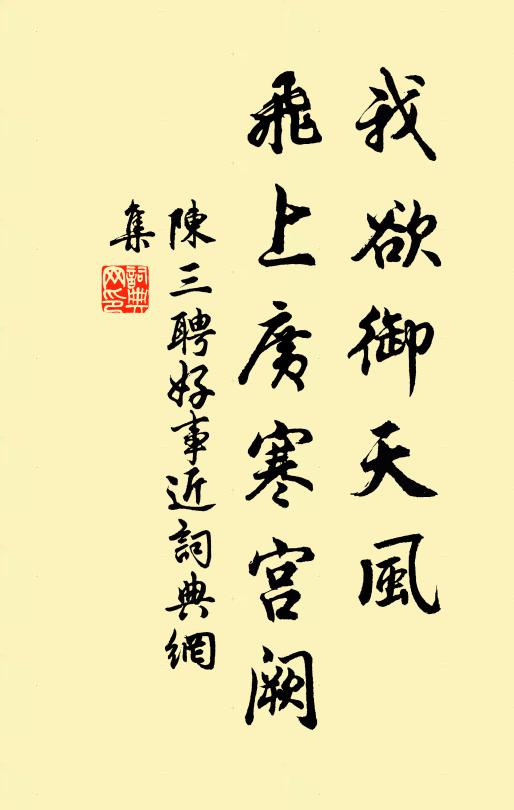 我欲御天風
飛上廣寒宮闕
陳三聘好事近詞典網
集
詞典網印